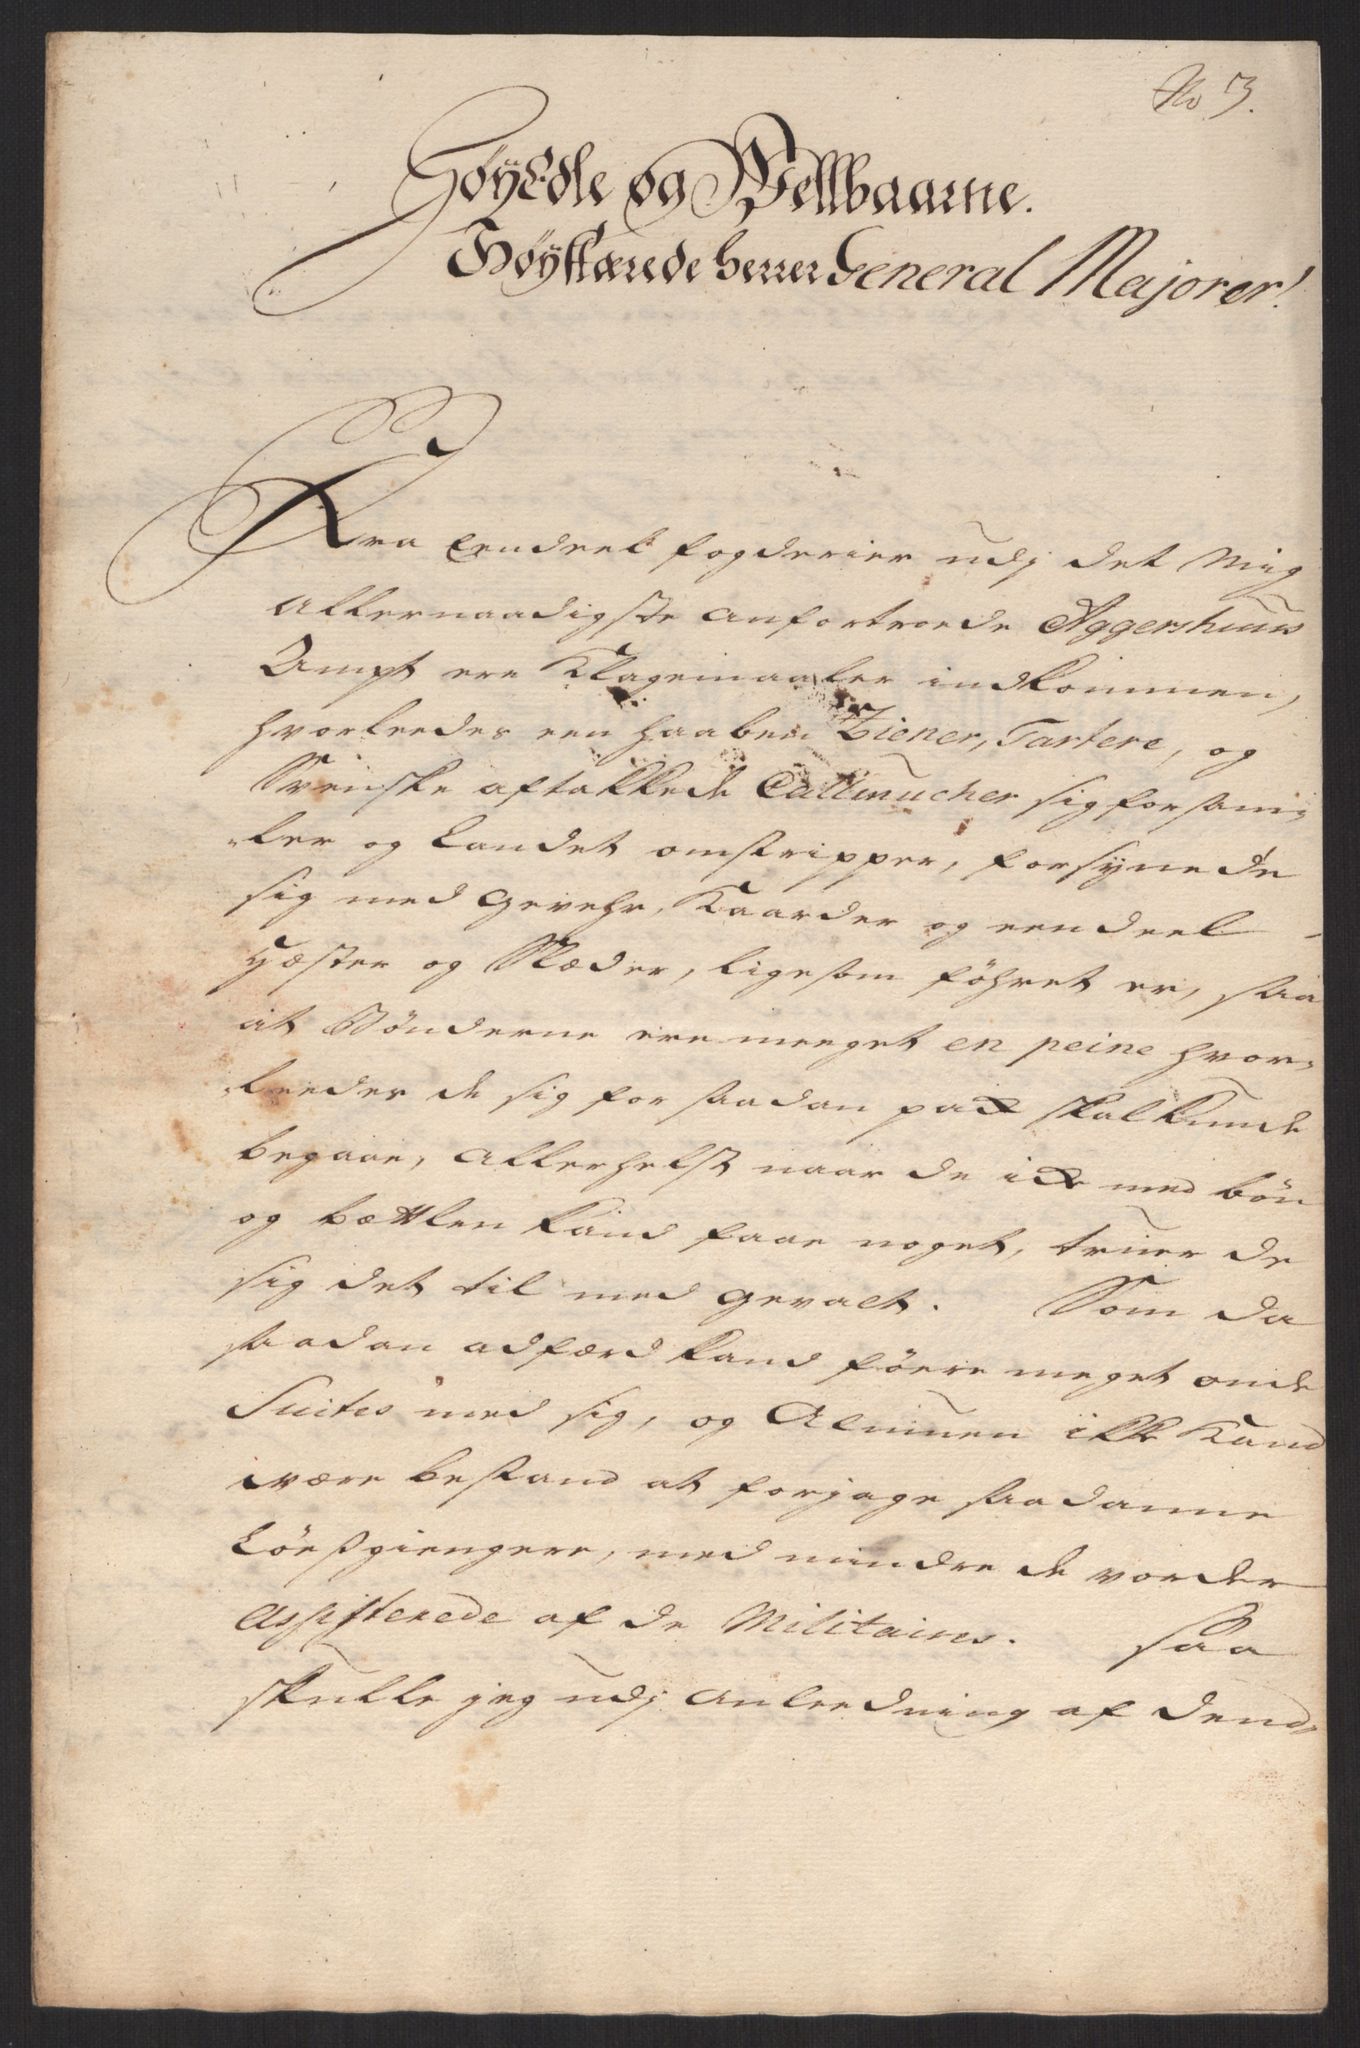 No 3.
HöyEdle og Wellbaarne.
Höystærede Herrer General Majorer!
Fra Eendeel fogderier udj det Mig
Allernaadigste anfortroede Aggershuus
Ampt ere Klagemaaler indkommen,
hvorleedes een haaben Ziener, Tartere, og
Svenske aftakkede Callmucher sig forsam¬
¬ler og Landet omstripper, forsynede
sig med gevehr, Kaarder og een deel
Hæster og Slæder, ligesom föhret er, saa
at Bönderne ere meeget en peine hvor¬
¬leedes de sig for saadan pack skal kunde
begaae, allerhelst naar de ick med bön
og bettlen kand faae noget, truer de
sig det til med gevalt. Som da
saadan adfærd kand föere meget onde
Suites med sig, og Almuen ikke kand
være bestand at forjage saadanne
Löesgiengere, med mindre de vorder
Assisterede af de Militaires. Saa
skulle jeg udj Anleedning af dend¬